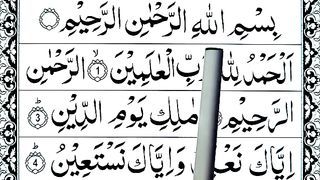 بِسْمِ اللهِ الرَّحْمٰنِ الرَّحِيْمِ
اَلْحَمْدُ لِلّٰهِ رَبِّ الْعٰلَمِيْنَ ۙ﴿1﴾ الرَّحْمٰنِ
الرَّحِيْمِ مٰلِكِ يَوْمِ الدِّيْنِ ؕ﴿3﴾
اِيَّاكَ نَعْبُدُ وَاِيَّاكَ نَسْتَعِيْنُ ؕ﴿4﴾